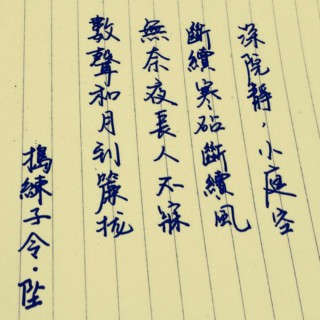 深院靜，小庭空
斷續寒砧斷續風
無奈夜長人不寐
數聲和月到簾櫳
搗練子令·